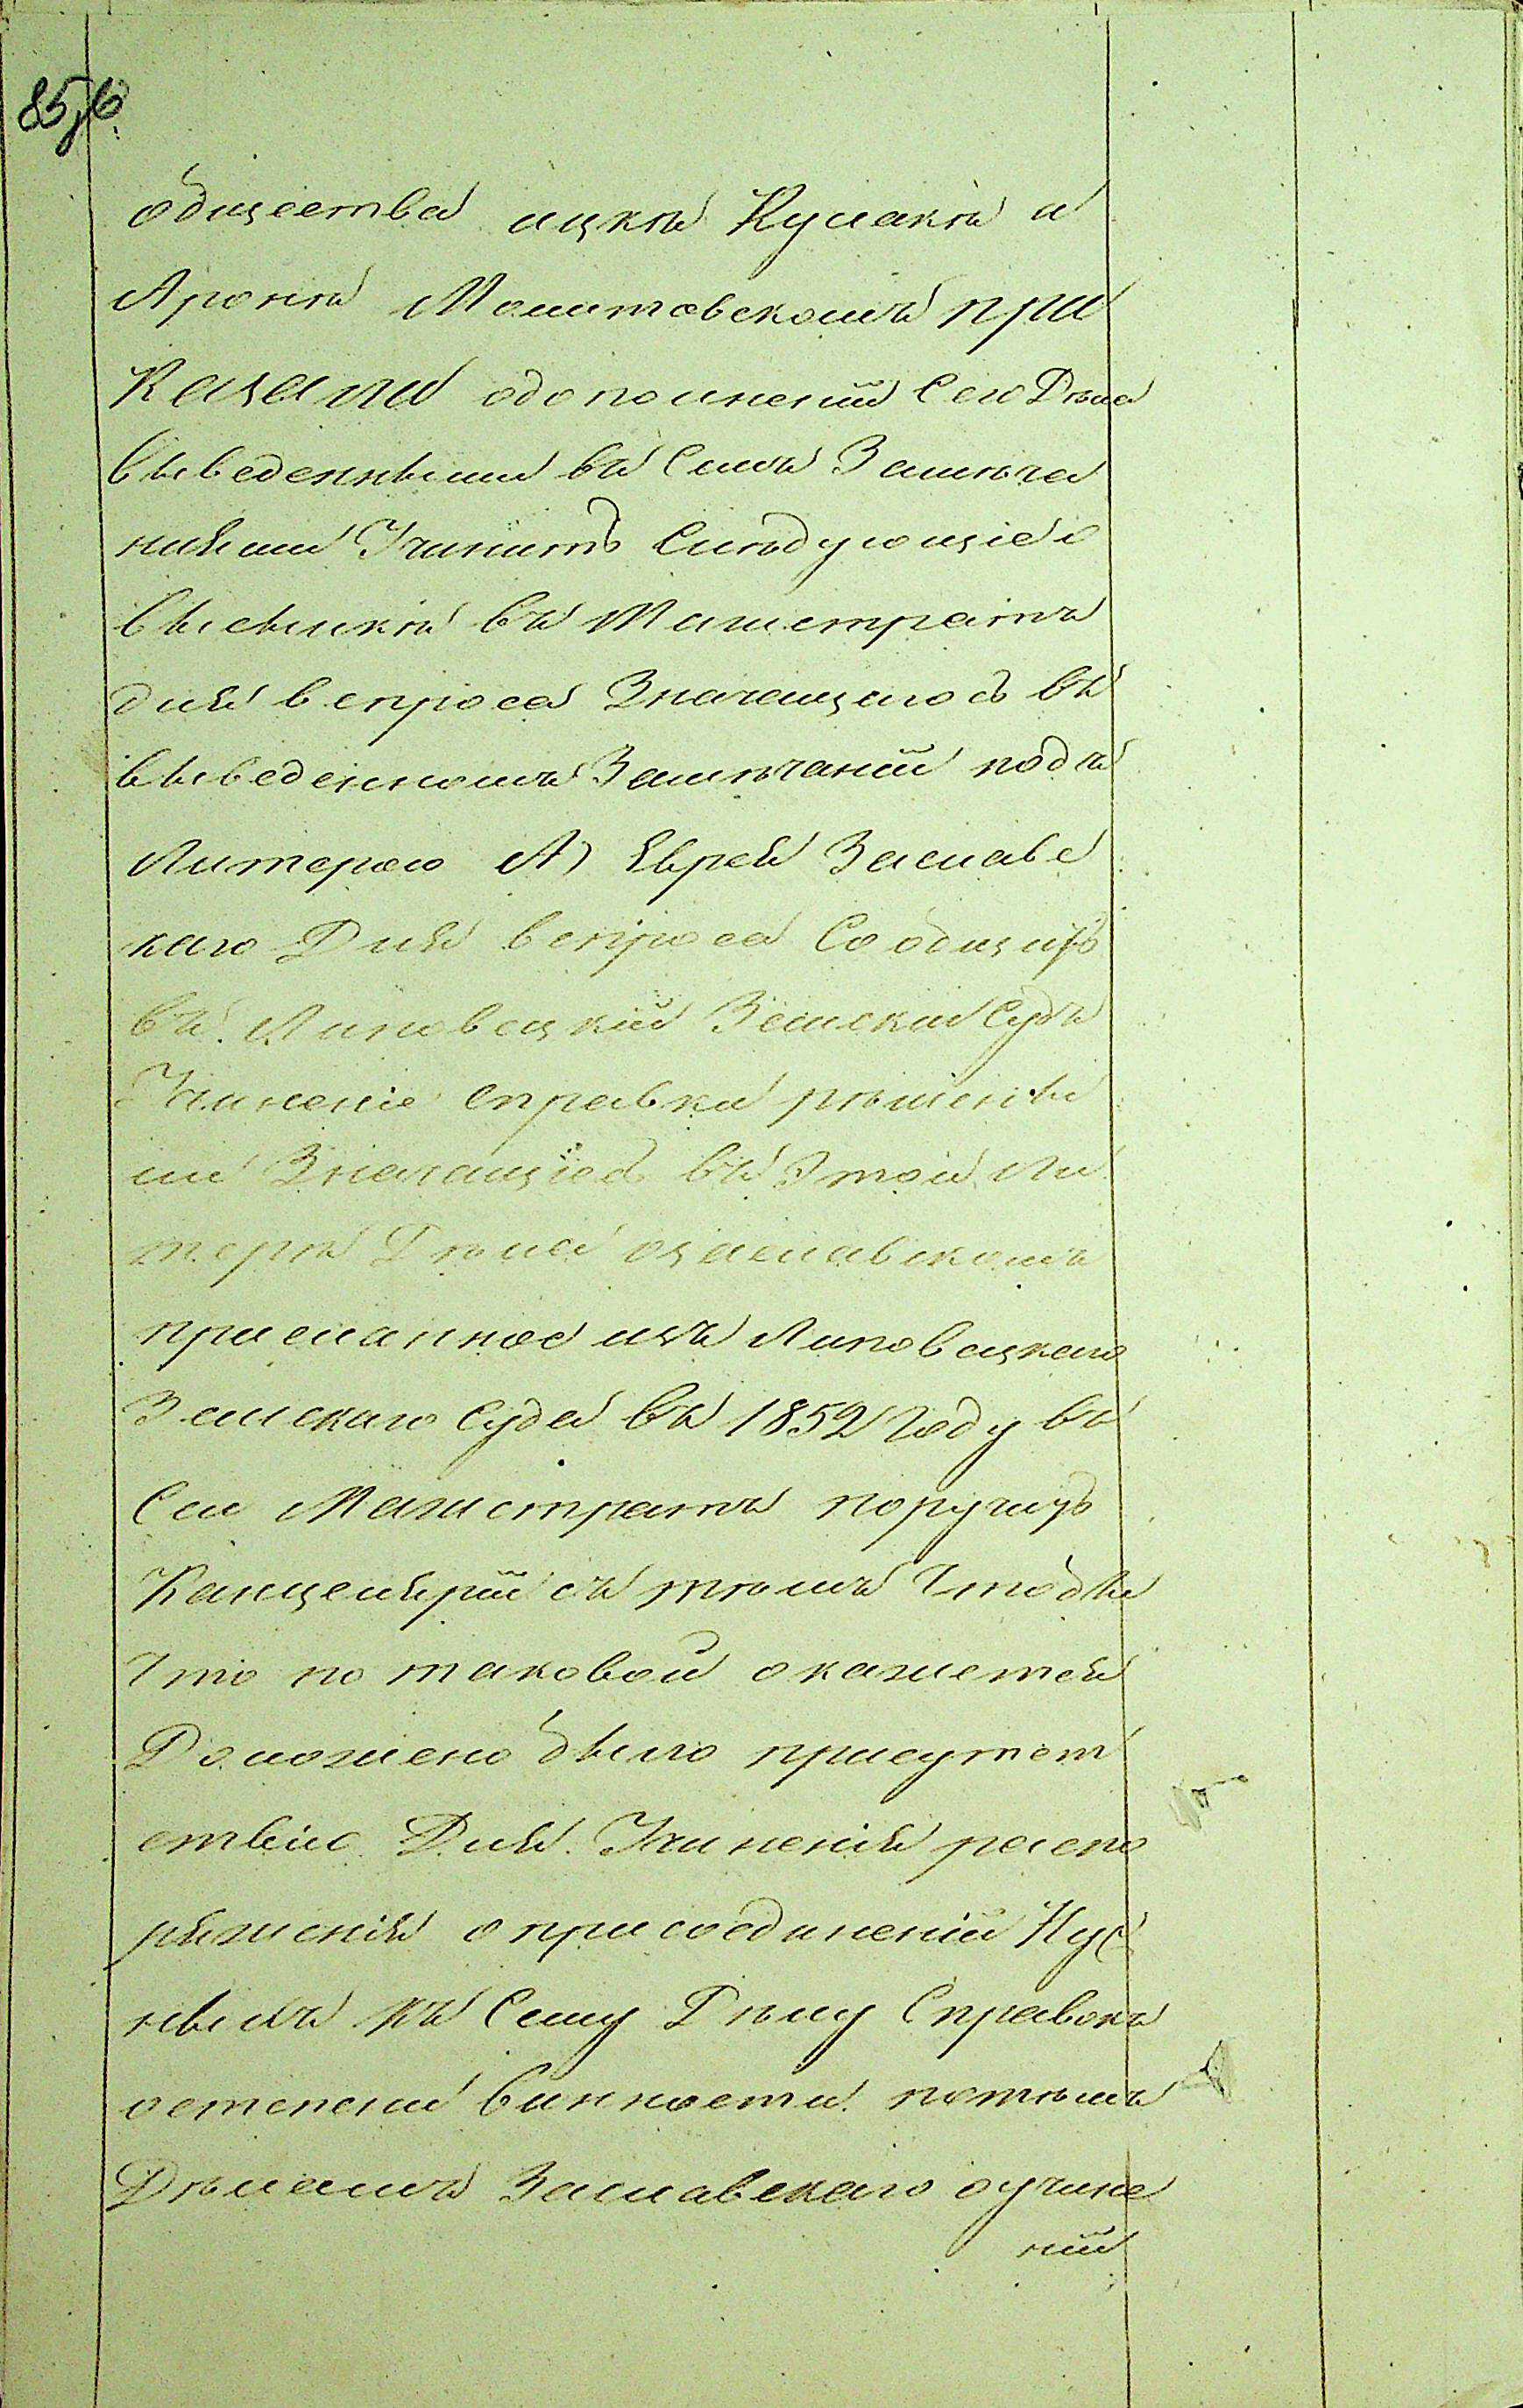 85об.
общества ицкѣ Кулакѣ и
Аронѣ Молитовскомъ при
Казали одополненіи Сего Дѣла
выведенными въ Симъ Замѣча
ніями Учинить Слѣдующіе о
высылкѣ въ Магистратъ
для вспроса Значащагось въ
выведенномъ Замѣчаніи подъ
Литерою А) Еврея Заславс
каго Для вспроса Сообщить
въ Липовецкій Земскій Судъ
Учиненіе справки рѣшены
ли Значащіесь въ Этой Ли
терѣ Дѣла озаславскомъ
присланное изъ Липовецкаго
Земскаго Суда въ 1852 Году въ
Сей Магистратъ поручить
Канцеляріи съ тѣмъ Чтобы
Что по таковой окажется
Доложено было присутст
ствію Для Учиненія распо
ряженія о присоединеніи Нуж
ныхъ къ Сему Дѣлу Справокъ
остепени винности потѣмъ
Дѣламъ Заславскаго оучине
ніи